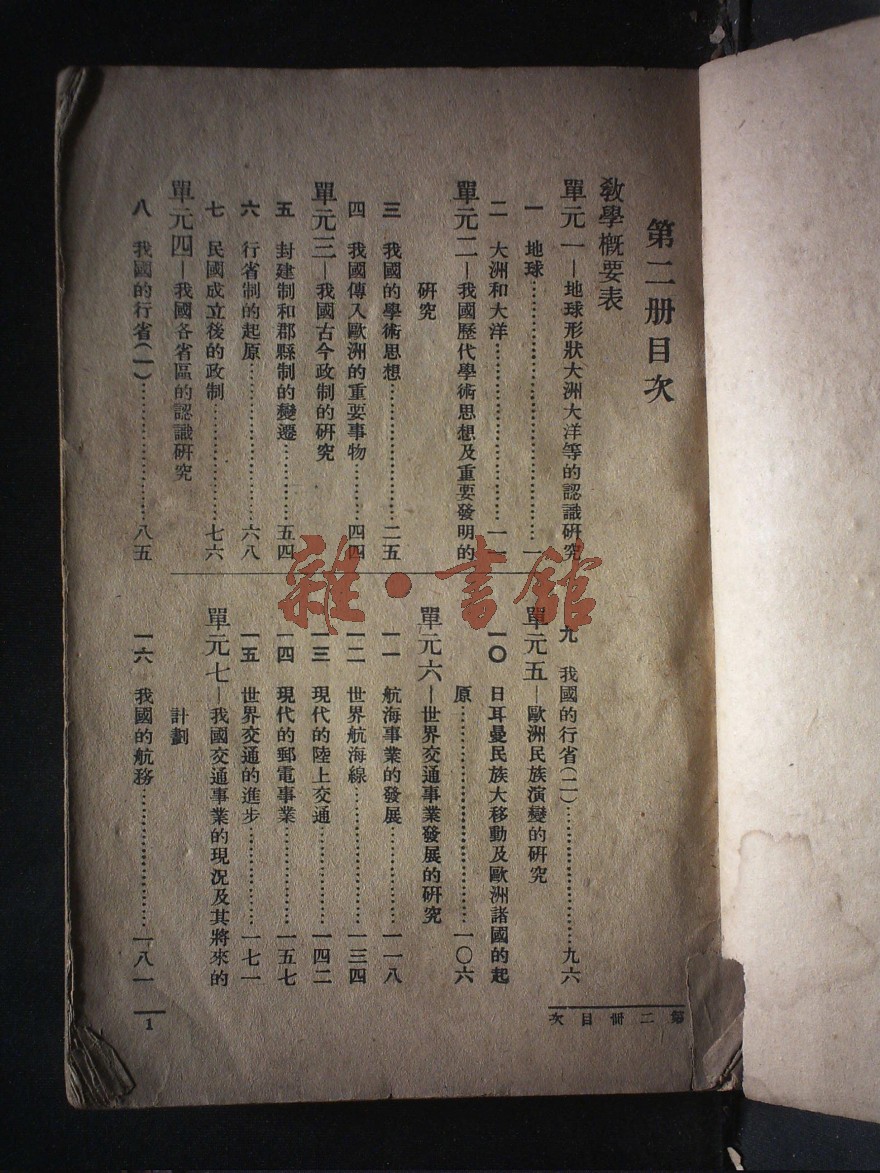 第二册目次
教學概要表
單元一—地球形狀大洲大洋等的認識研究
一 地球…………一
二 大洲和大洋…………一一
單元二—我國歷代學術思想及重要發明的
研究
三 我國的學術思想…………二五
四 我國傳入歐洲的重要事物…………四四
單元三—我國古今政制的研究
五 封建制和郡縣制的變遷…………五四
六 行省制的起原…………六八
七 民國成立後的政制…………七六
單元四—我國各省區的認識研究
八 我國的行省(一)…………八五
九 我國的行省(二)…………九六
單元五—歐洲民族演變的研究
一〇 日耳曼民族大移動及歐洲諸國的起
原…………一〇六
單元六—世界交通事業發展的研究
一一 航海事業的發展…………一一八
一二 世界航海線…………一三四
一三 現代的陸上交通…………一四二
一四 現代的郵電事業…………一五七
一五 世界交通的進步…………一七一
單元七—我國交通事業的現況及其將來的
計劃
一六 我國的航務…………一八一
第二冊目次
1
雜·書館